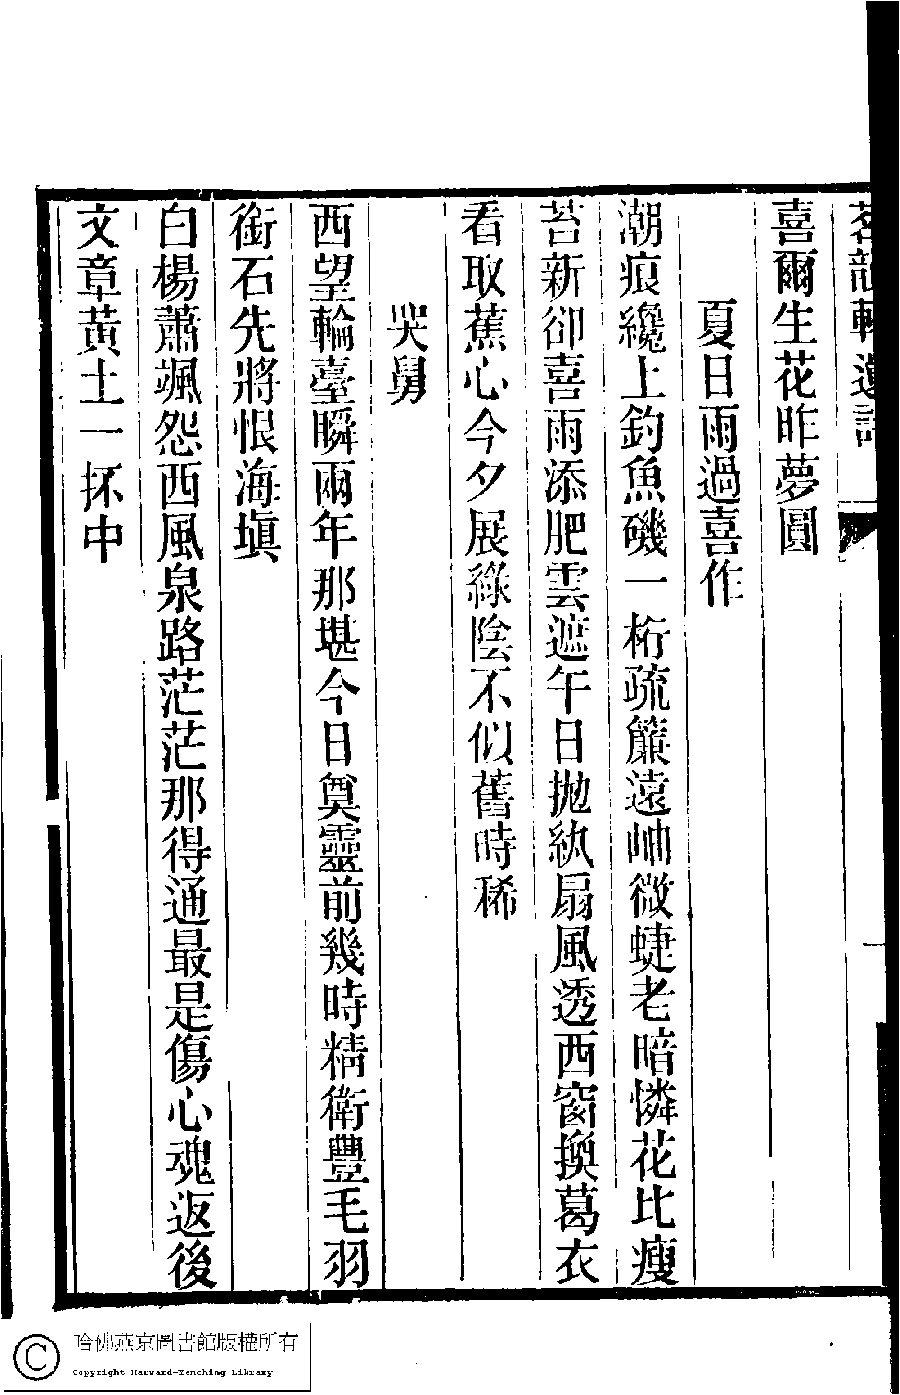 茗韻軒遺詩
喜爾生花昨夢圓
夏日雨過喜作
潮痕纔上釣魚磯一桁疏簾遠岫微蜨老暗憐花比瘦
苔新卻喜雨添肥雲遮午日拋紈扇風透西窗換葛衣
看取蕉心今夕展綠陰不似舊時稀
哭舅
西望輪臺瞬兩年那堪今日奠靈前幾時精衛豐毛羽
銜石先將恨海塡
白楊蕭颯怨西風泉路茫茫那得通最是傷心魂返後
文章黃土一抔中
哈佛燕京圖書館版權所有
Copyright Harvard-Yenching Library